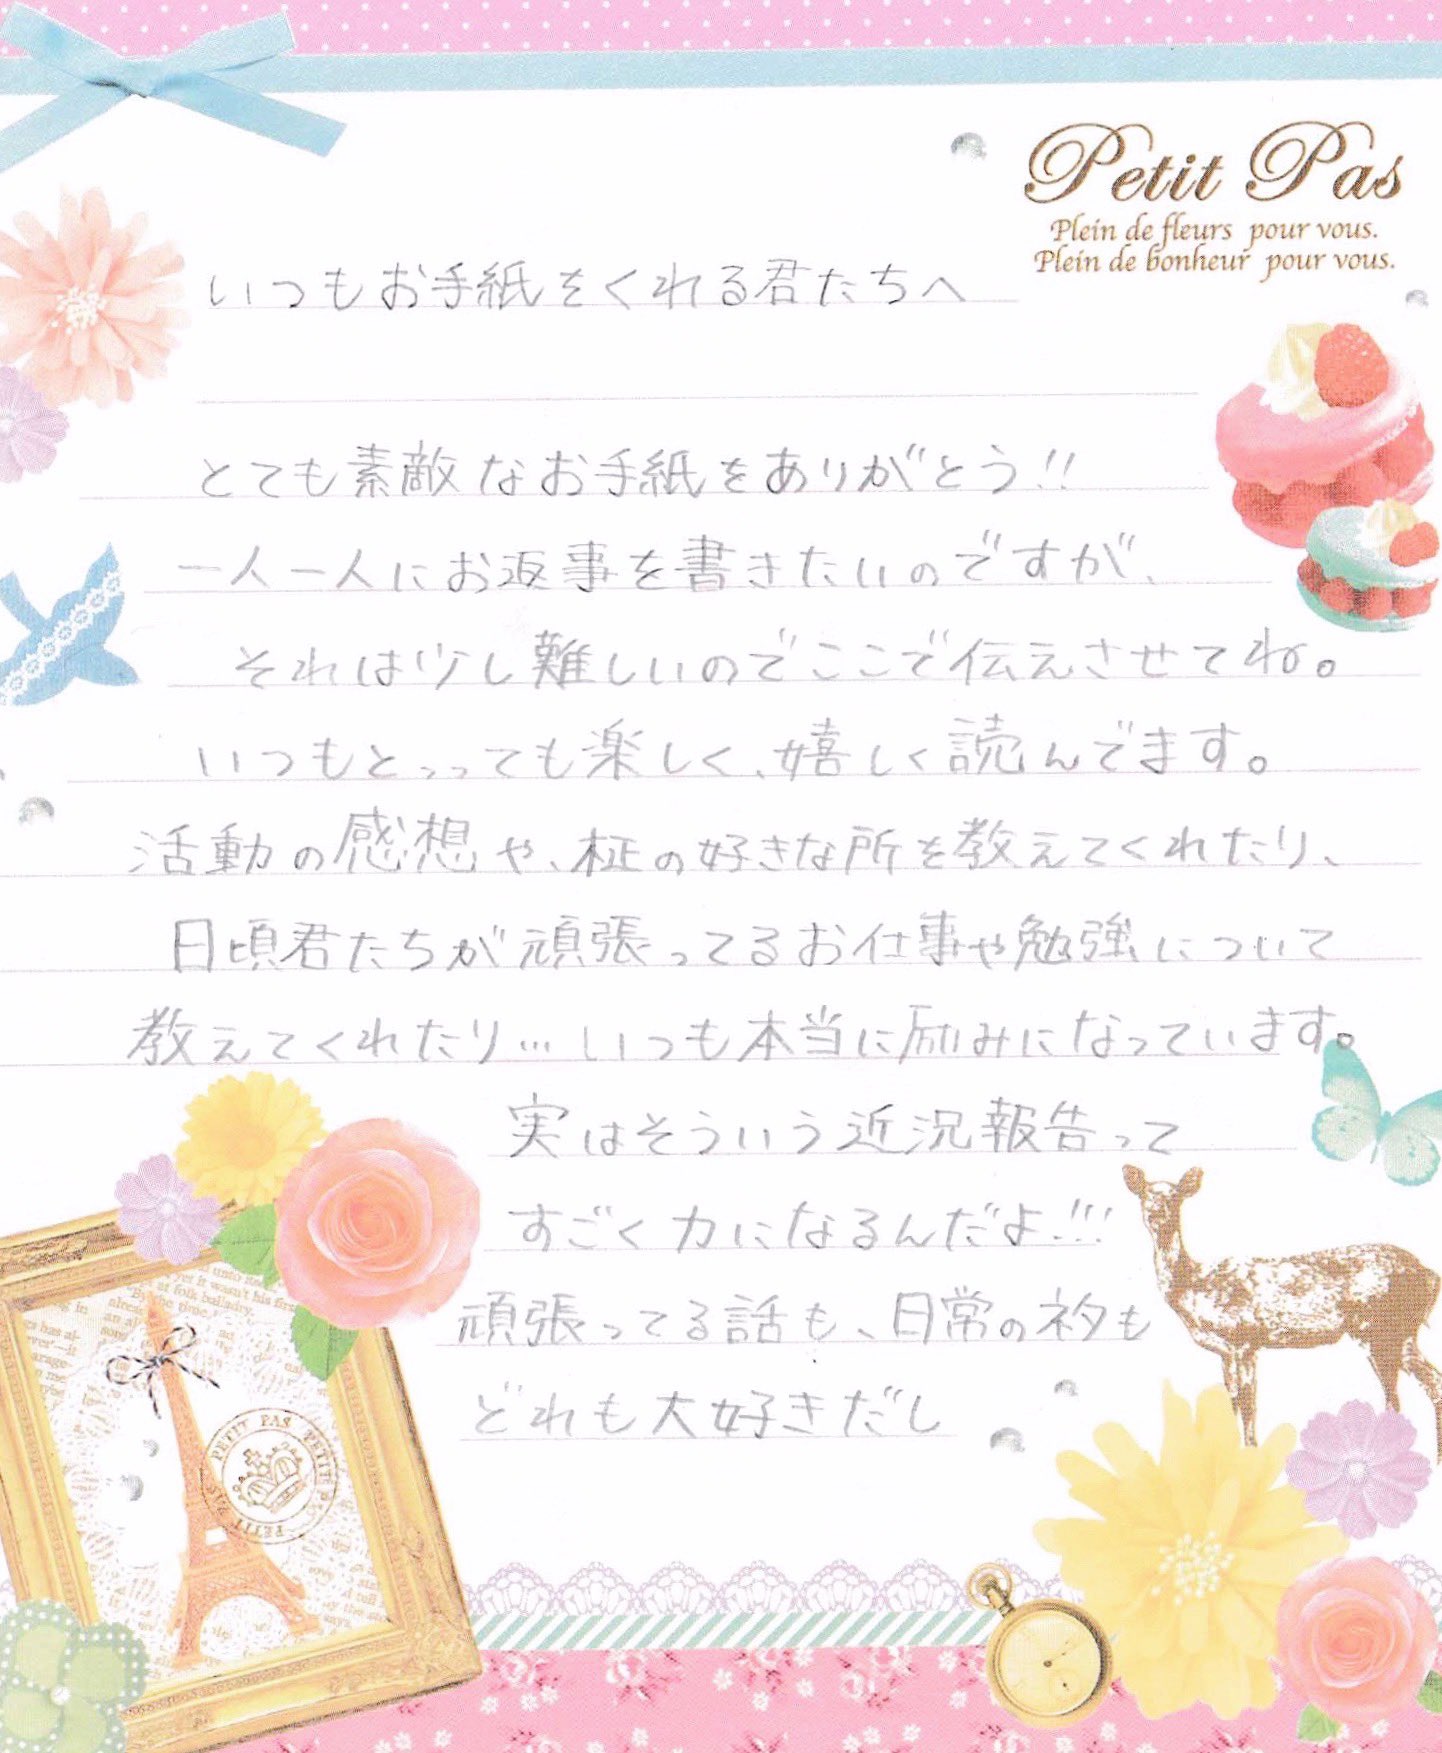 Petit Pas
Plein de fleurs pour vous.
Plein de bonheur pour vous.
いつもお手紙をくれる君たちへ
とても素敵なお手紙をありがとう!!
一人一人にお返事を書きたいのですが、
それは少し難しいのでここで伝えさせてね。
いつもとっっても楽しく、嬉しく読んでます。
活動の感想や、柾の好きな所を教えてくれたり、
日頃君たちが頑張ってるお仕事や勉強について
教えてくれたり…いつも本当に励みになっています。
実はそういう近況報告って
すごく力になるんだよ!!!
頑張ってる話も、日常の〆も
どれも大好きだし
PETIT PAS PETIT PAS PETIT